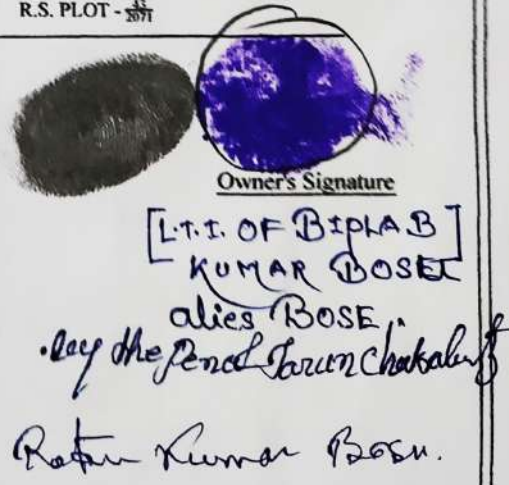 R.S. PLOT - 33/2071
Owner's Signature
[L.T.I. OF BIPLAB]
KUMAR BOSE
alies BOSE.
by the Pen of Tarun Chakrabort
Ratan Kumar Bosu.